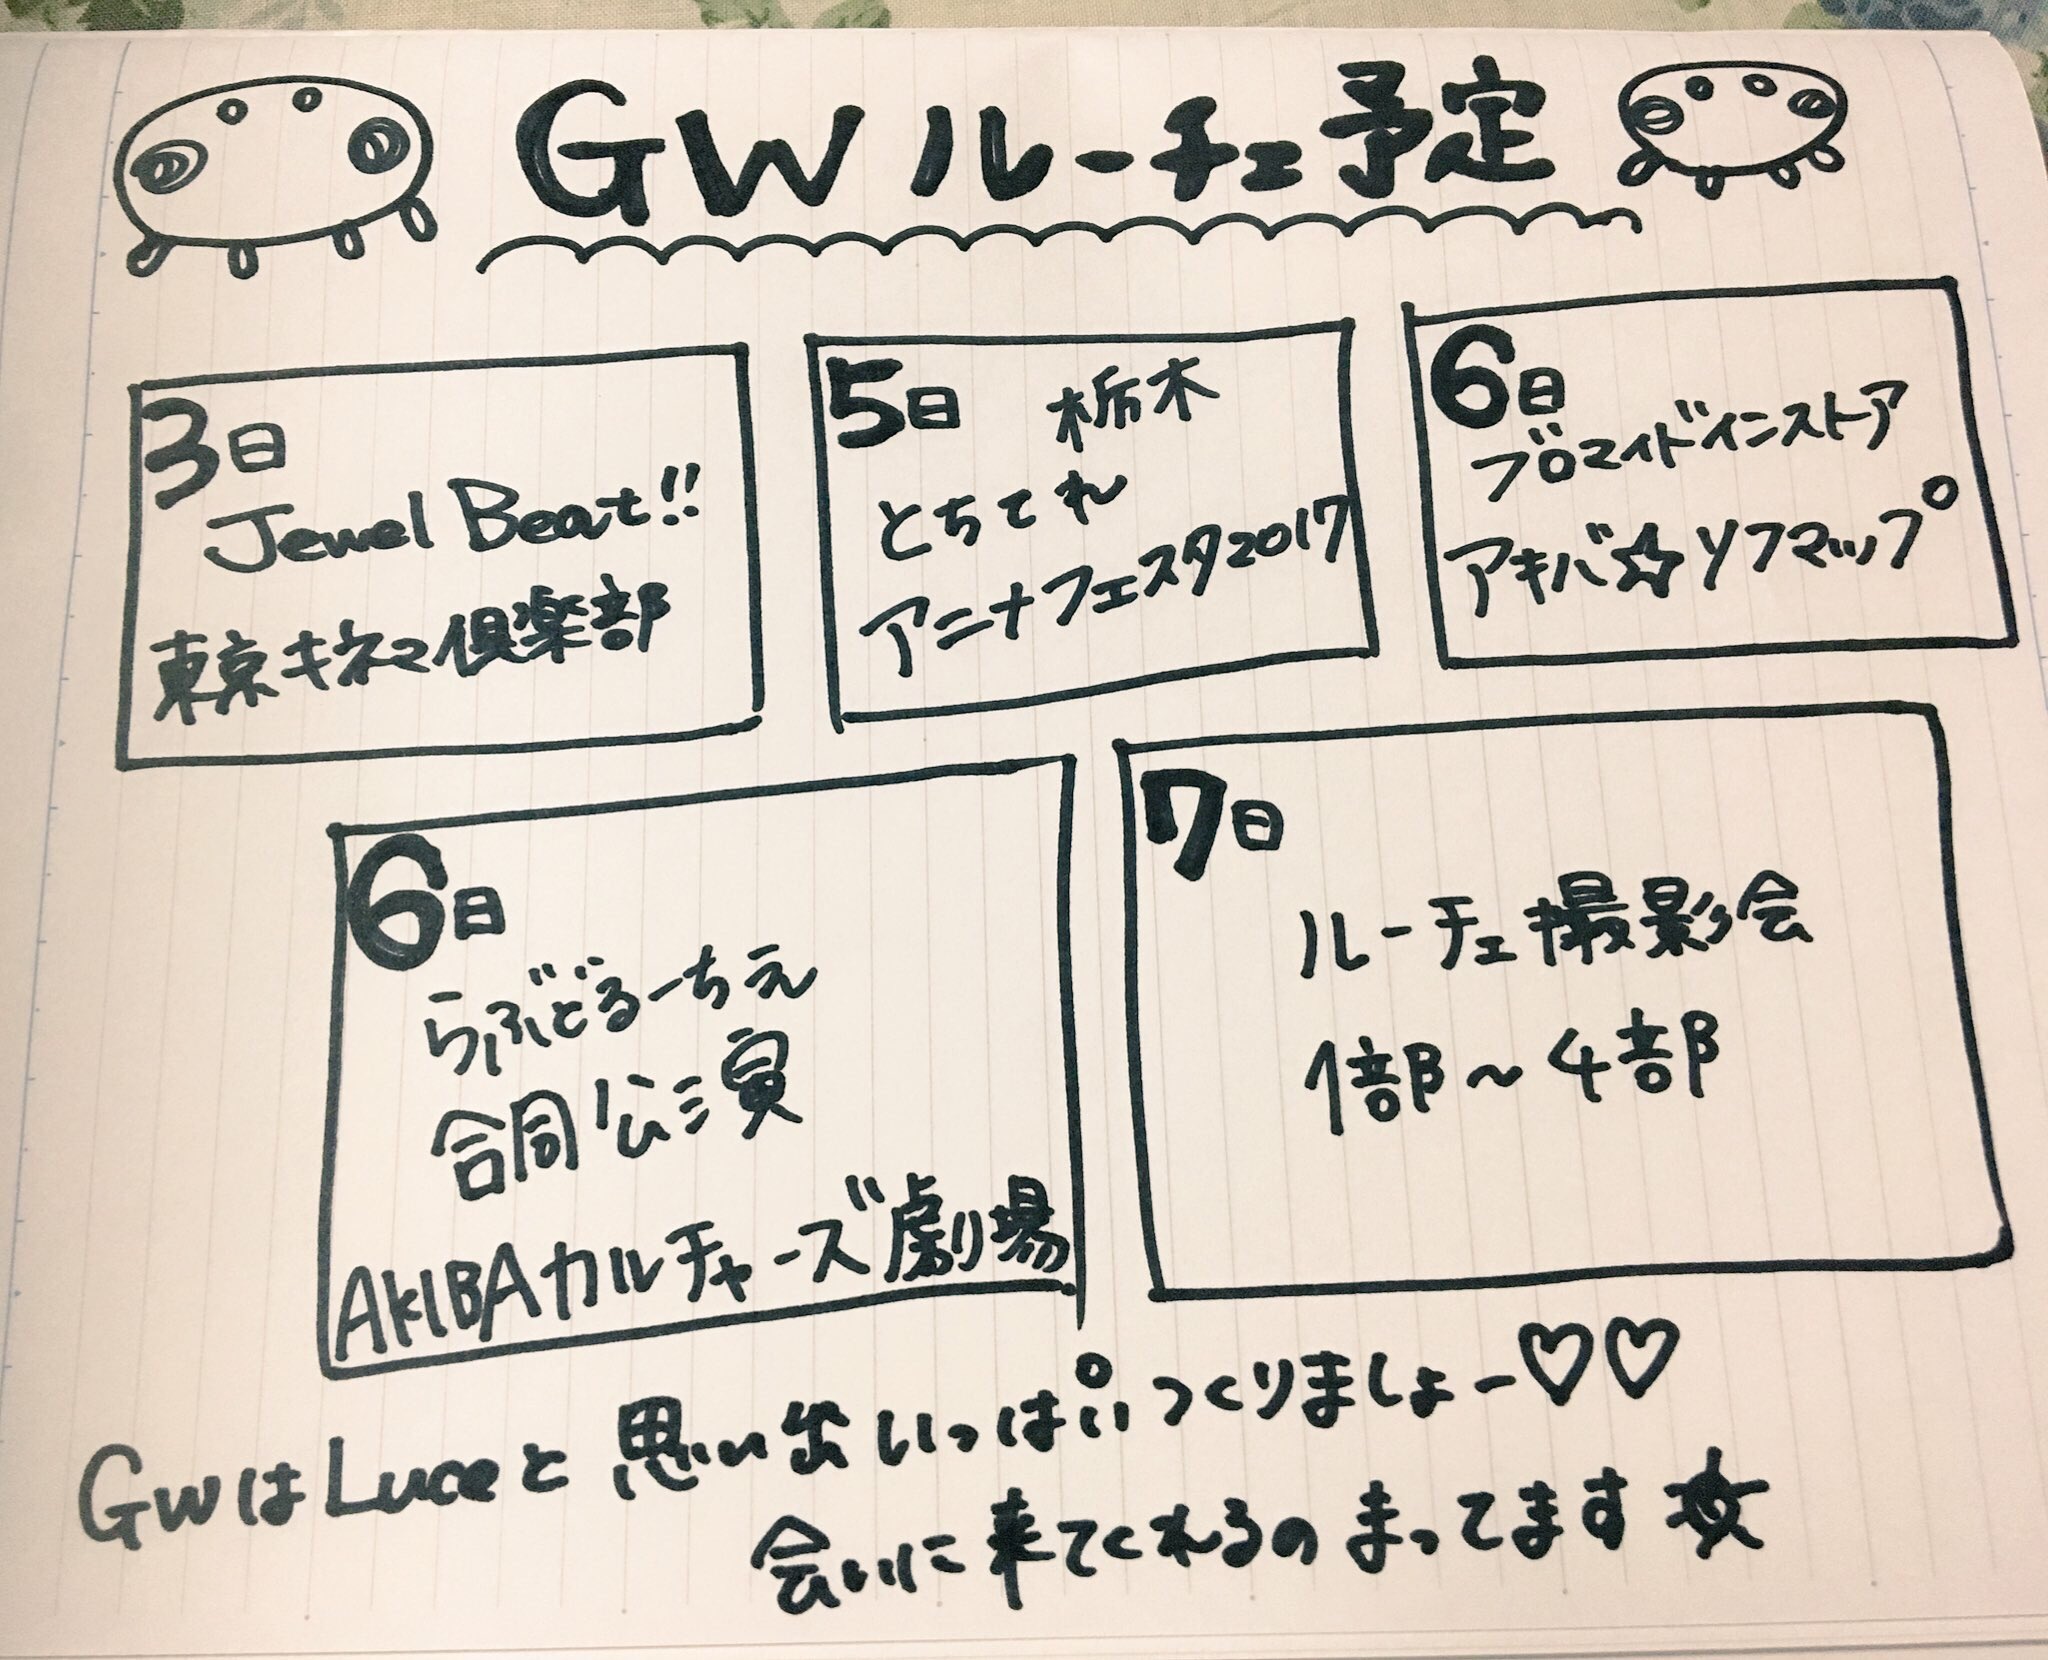 GWルーチェ予定
3日
Jewel Beat!!
東京キネマ倶楽部
5日 栃木
とちてれ
アニナフェスタ2017
6日
ブロマイドインストア
アキバ☆ソフマップ
6日
らぶどるーちえ
合同公演
AKIBAカルチャーズ劇場
7日
ルーチェ撮影会
1部～4部
GWはLuceと思い出いっぱいつくりましょー♡♡
会いに来てくれるのまってます☆